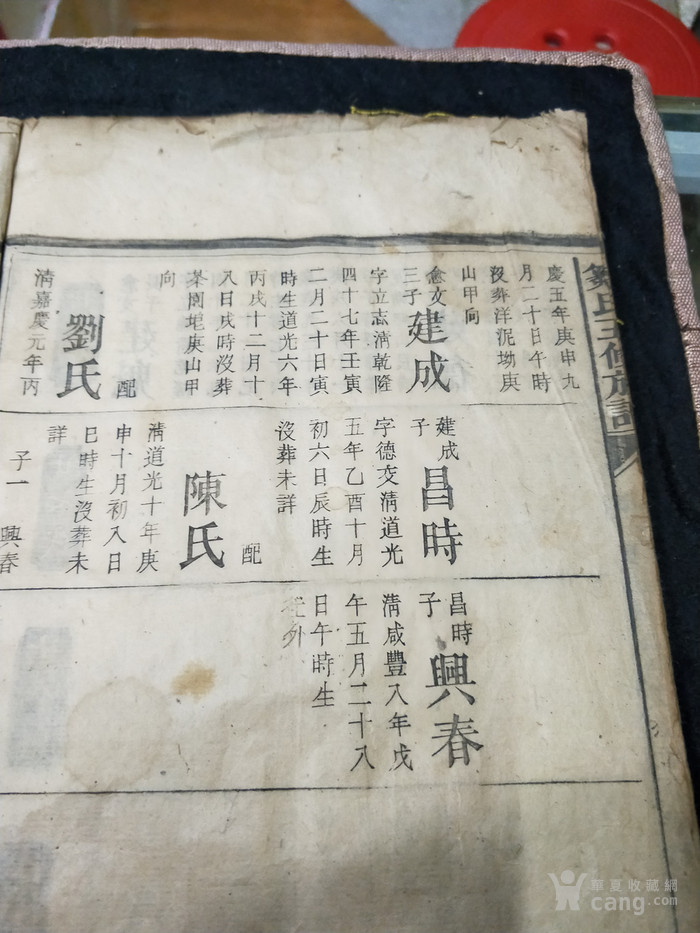 氏五修族譜
慶五年庚申九
月二十日午時
沒葬洋泥坳庚
山甲向
愈文
三子
建成
字立志清乾隆
四十七年壬寅
二月二十日寅
時生道光六年
丙戌十二月十
八日戌時沒葬
茶園垉庚山甲
向
配
劉氏
清嘉慶元年丙
建成
子
昌時
字德文清道光
五年乙酉十月
初六日辰時生
沒葬未詳
配
陳氏
清道光十年庚
申十月初八日
巳時生沒葬未
詳
子一 興春
昌時
子
興春
清咸豐八年戊
午五月二十八
日午時生
往外
華夏收藏網
cang.com